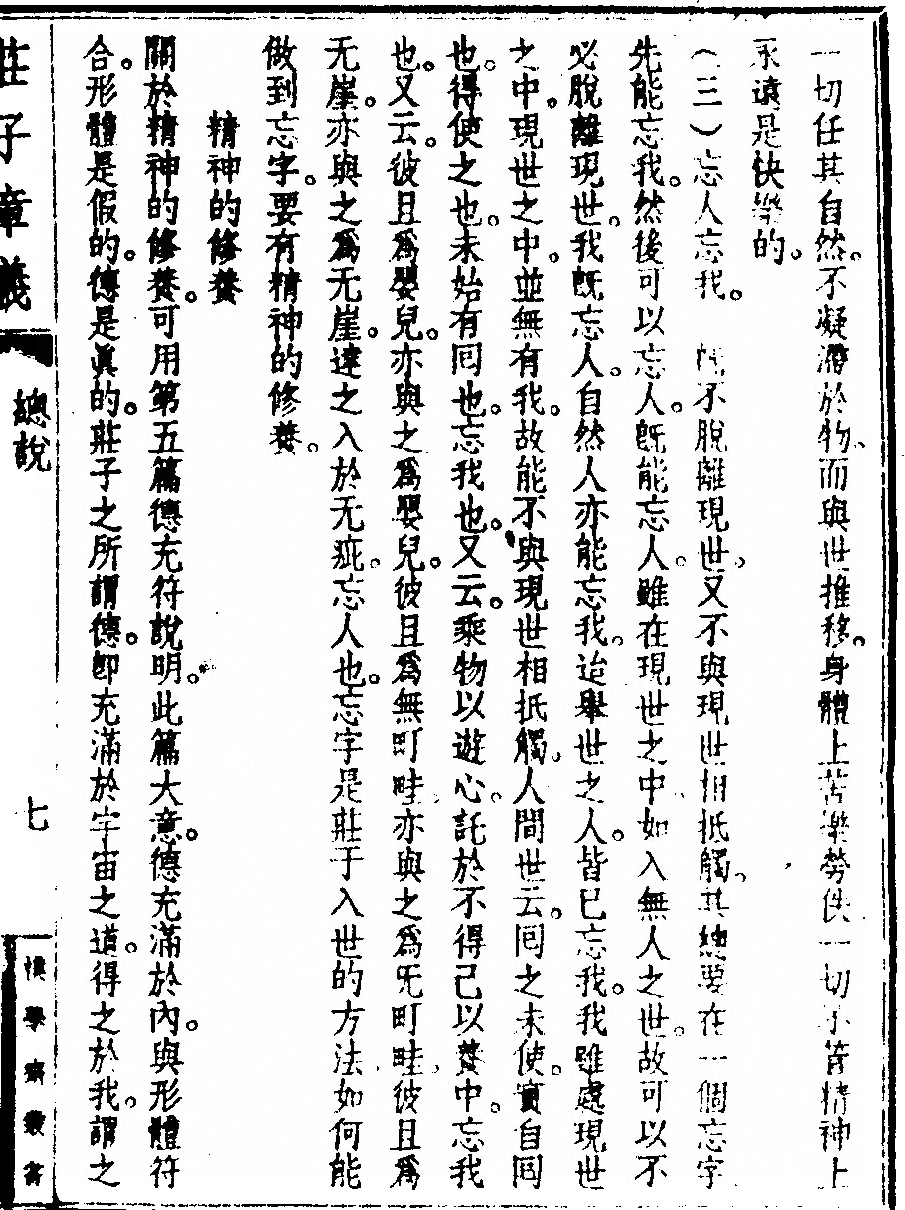 一切任其自然。不凝滯於物、而與世推移。身體上苦樂勞佚一切不管精神上
永遠是快樂的。
(三)忘人忘我。 既不脫離現世。又不與現世相抵觸。其總要在一個忘字
先能忘我。然後可以忘人。既能忘人。雖在現世之中。如入無人之世。故可以不
必脫離現世。我既忘人。自然人亦能忘我。迨舉世之人。皆已忘我。我雖處現世
之中。現世之中。並無有我。故能不與現世相抵觸。人間世云。囘之未使。實自囘
也。得使之也。未始有囘也。忘我也。又云。乘物以遊心。託於不得已以養中。忘我
也。又云。彼且爲嬰兒。亦與之爲嬰兒。彼且爲無町畦。亦與之爲无町畦。彼且爲
无崖。亦與之爲无崖。達之入於无疵。忘人也。忘字是莊子入世的方法如何能
做到忘字。要有精神的修養。
精神的修養
關於精神的修養。可用第五篇德充符說明。此篇大意。德充滿於內。與形體符
合。形體是假的。德是眞的。莊子之所謂德。卽充滿於宇宙之道。得之於我。謂之
莊子章義
總說
七
樸學齋叢書